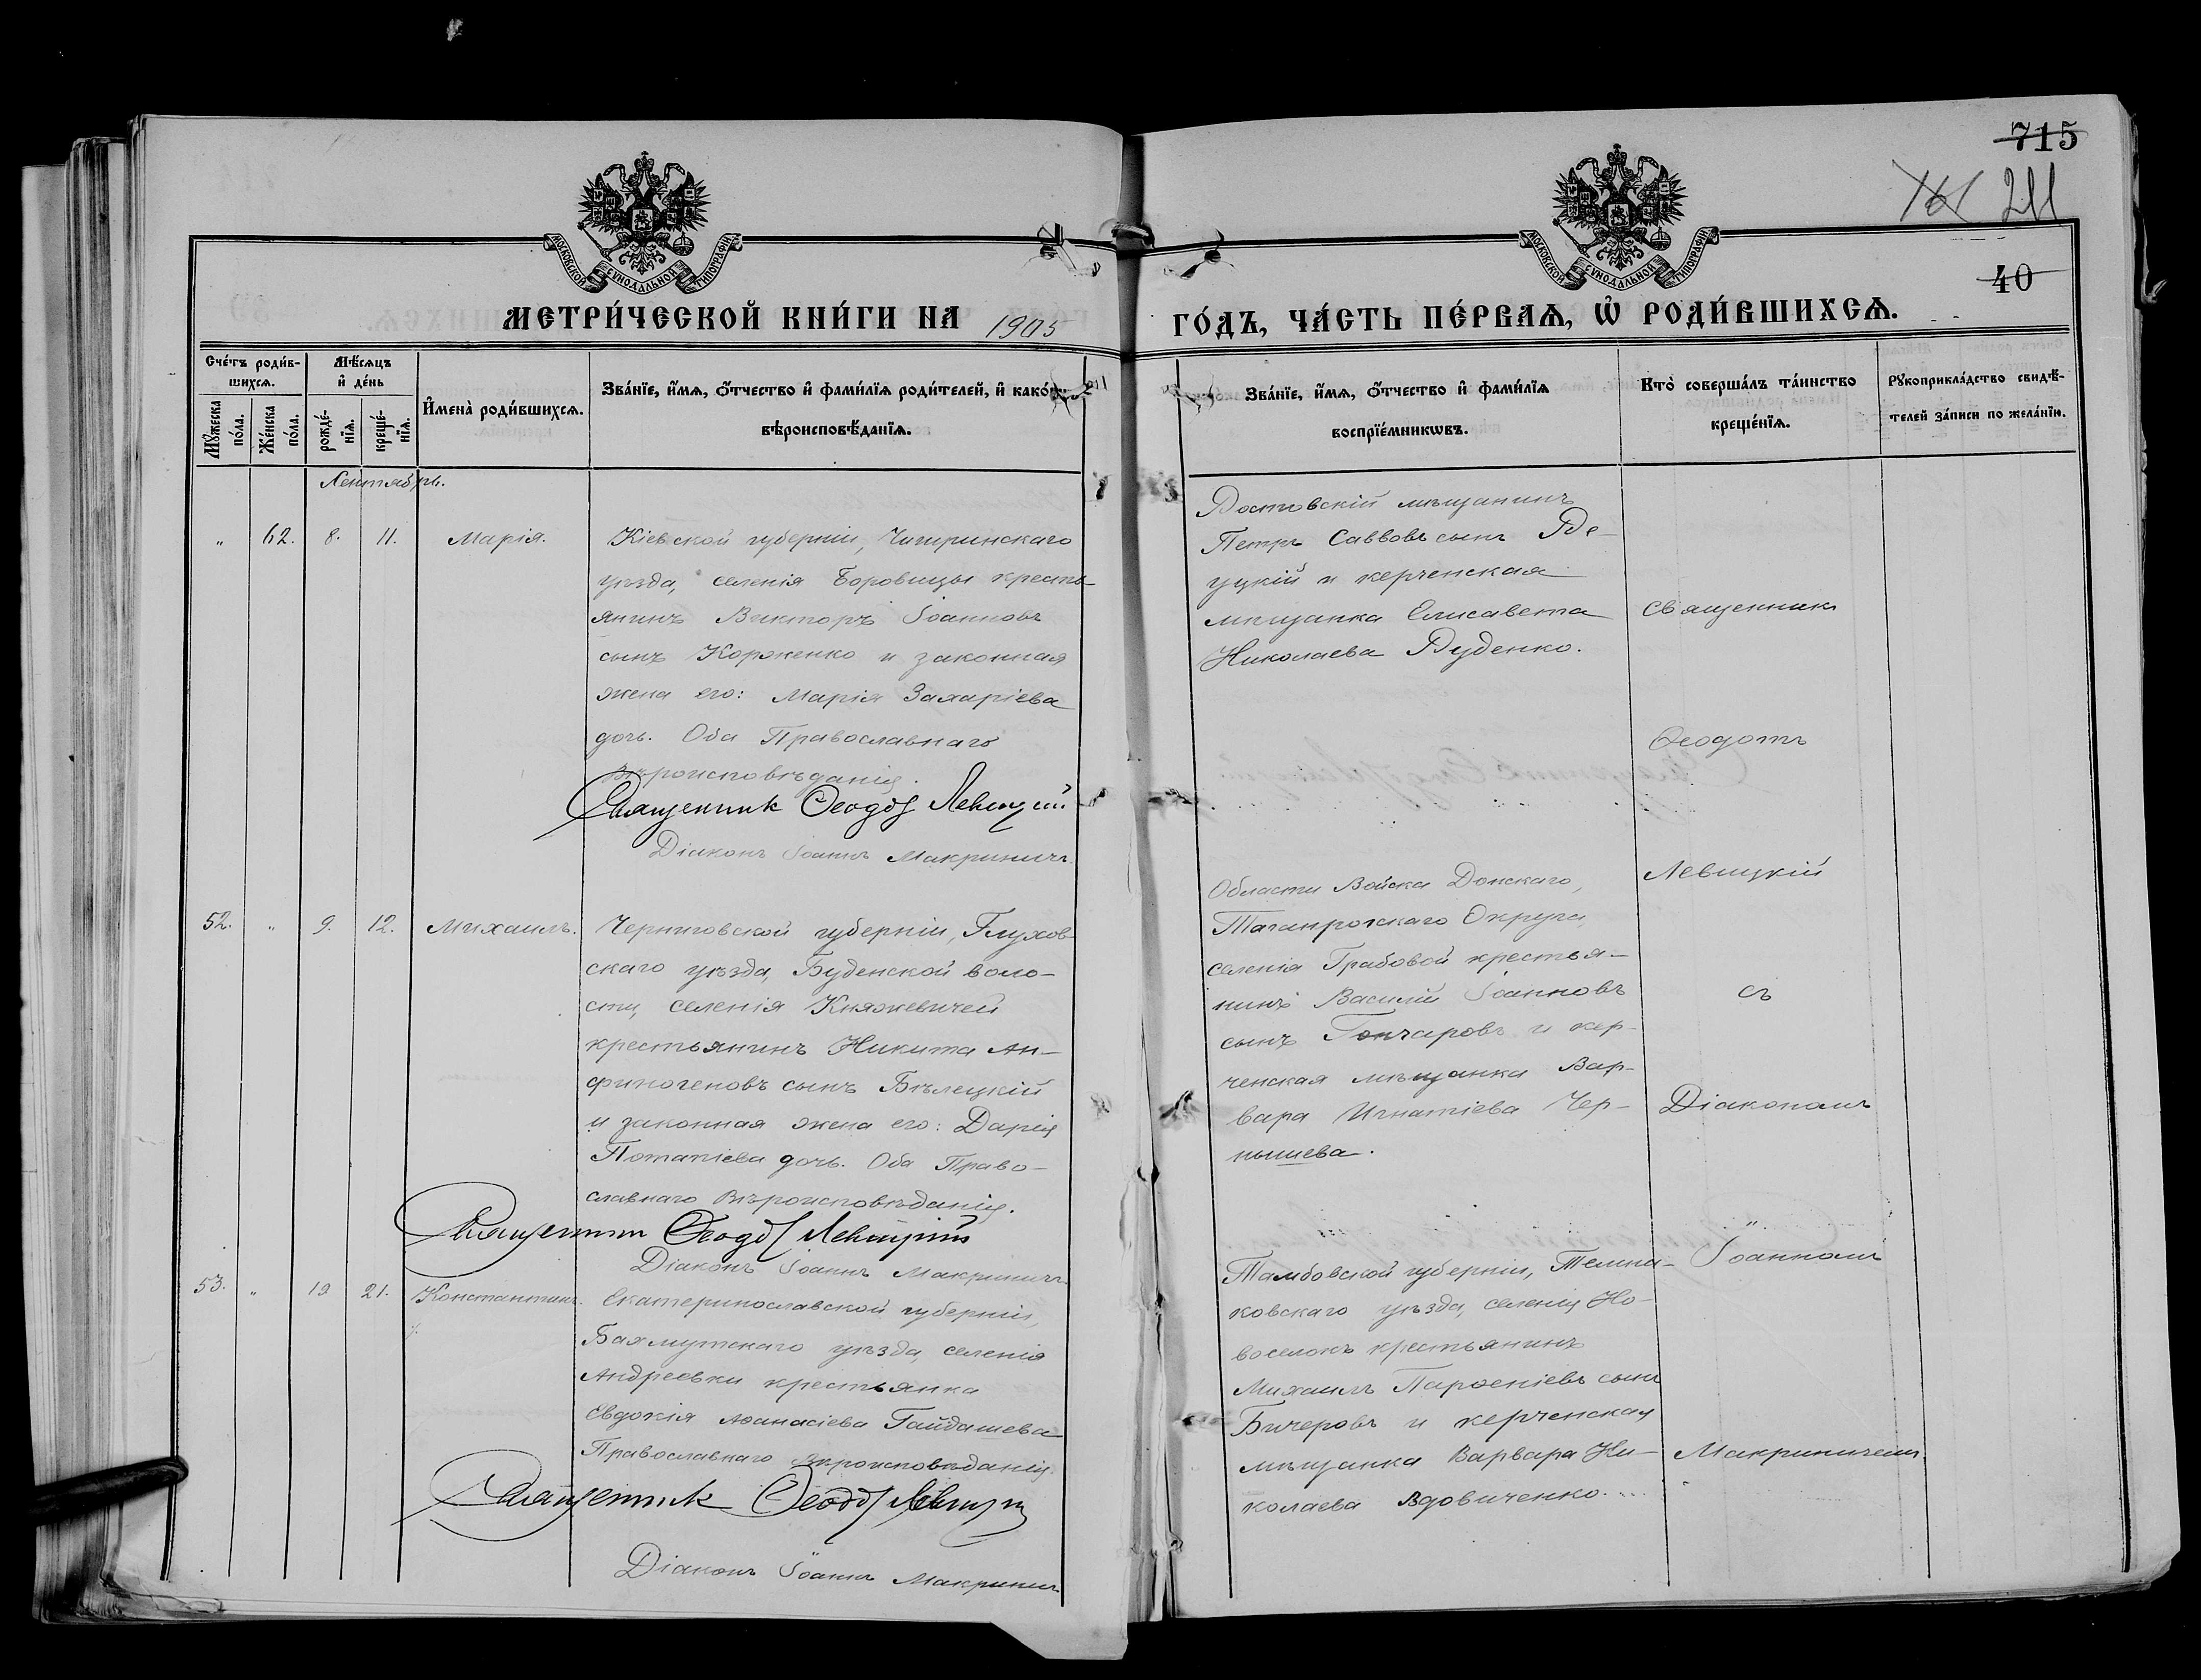 715
161 211
40
МОСКОВСКОЙ СѴНОДАЛЬНОЙ ТИПОГРАФІИ
МОСКОВСКОЙ СѴНОДАЛЬНОЙ ТИПОГРАФІИ
МЕТРИ́ЧЕСКОЙ КНИ́ГИ НА 1905
ГО́ДЪ, ЧА́СТЬ ПЕ́РВАѦ, Ѡ҆ РОДИ́ВШИХСѦ.
Сче́тъ роди́в-
шихсѧ.
Мꙋ́жеска по́ла.
Же́нска по́ла.
Мѣ́сѧцъ
и҆ де́нь
рожде́-
нїѧ.
креще́-
нїѧ.
И҆мена̀ роди́вшихсѧ.
Зва́нїе, и҆́мѧ, ѻ҆́тчество и҆ фами́лїѧ роди́телей, и҆ како́гѡ
вѣроисповѣ́данїѧ.
Зва́нїе, и҆́мѧ, ѻ҆́тчество и҆ фами́лїѧ
воспрїе́мникѡвъ.
Кто̀ соверша́лъ та́инство
креще́нїѧ.
Рꙋкоприкла́дство свидѣ́-
телей за́писи по жела́нїю.
Сентябрь.
" 62. 8. 11. Марія.
Кіевской губерніи, Чигиринскаго
уѣзда, селенія Боровицы кресть-
янинъ Викторъ Іоанновъ
сынъ Корженко и законная
жена его: Марія Захаріева
дочь. Оба Православнаго
Вѣроисповѣданія.
Священник Ѳеодот Левицкий
Діаконъ Іоаннъ Макриничъ
Ростовскій мѣщанинъ
Петръ Саввовъ сынъ Ре-
уцкій и керченская
мѣщанка Елисавета
Николаева Руденко.
Священник
Ѳеодотъ
Левицкій
съ
Діакономъ
Іоанномъ
Макриничемъ.
52. " 9. 12. Михаилъ.
Черниговской губерніи, Глухов-
скаго уѣзда, Буденской воло-
сти, селенія Княжевичей
крестьянинъ Никита Ан-
финогеновъ сынъ Бѣлецкій
и законная жена его: Дарія
Потапіева дочь. Оба Право-
славнаго Вѣроисповѣданія.
Священник Ѳеодот Левицкий
Діаконъ Іоаннъ Макриничъ
Области Войска Донскаго,
Таганрогскаго Округа,
селенія Грабовой крестья-
нинъ Василій Іоанновъ
сынъ Гончаровъ и кер-
ченская мѣщанка Вар-
вара Игнатіева Чер-
нышева.
53. " 19 21. Константинъ.
Екатеринославской губерніи,
Бахмутскаго уѣзда, селенія
Андреевки крестьянка
Евдокія Аѳанасіева Гайдашева
Православнаго Вѣроисповѣданія.
Священник Ѳеодот Левицкий
Діаконъ Іоаннъ Макриничъ
Тамбовской губерніи, Темни-
ковскаго уѣзда, селенія Но-
воселокъ крестьянинъ
Михаилъ Парѳеніевъ сынъ
Бичеровъ и керченская
мѣщанка Варвара Ни-
колаева Вдовиченко.